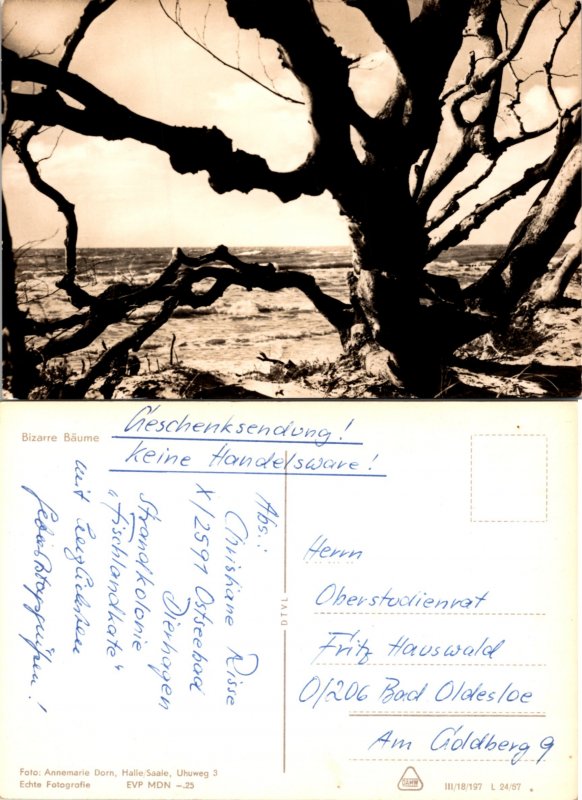 Bizarre Bäume
Geschenksendung!
Keine Handelsware!
Abs.:
Christiane Risse
X/2591 Ostseebad
Dierhagen
Strandkolonie
"Fischlandkate"
mit herzlichsten
Geburtstagsgrüßen!
DIVAL
Herrn
Oberstudienrat
Fritz Hauswald
O/206 Bad Oldesloe
Am Goldberg 9
Foto: Annemarie Dorn, Halle/Saale, Uhuweg 3
Echte Fotografie EVP MDN –.25
III/18/197 L 24/57